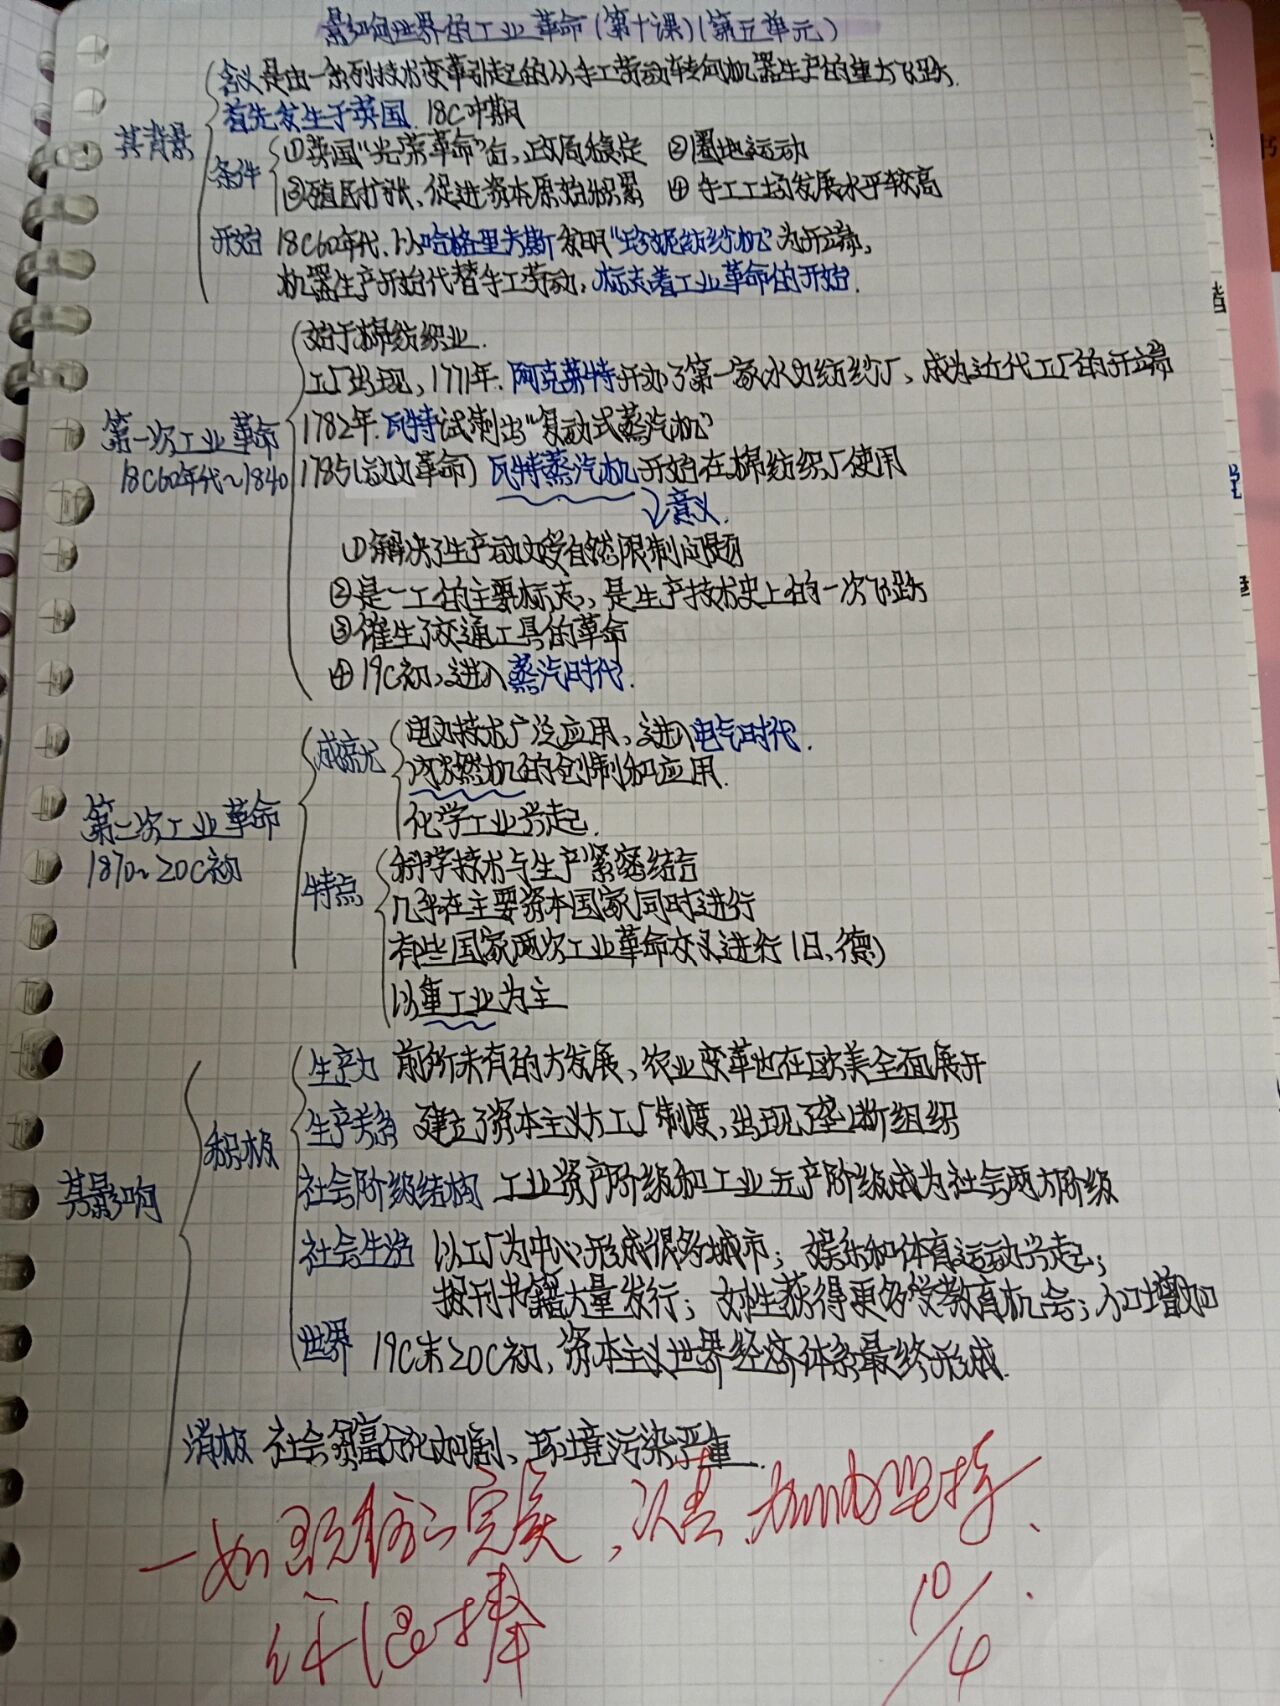 影响世界的工业革命(第十课)(第五单元)
其背景
含义 是由一系列技术变革引起的从手工劳动转向机器生产的重大飞跃.
首先发生于英国. 18C中期
条件 ①英国"光荣革命"后,政局稳定 ②圈地运动
③殖民扩张、促进资本原始积累 ④手工工场发展水平较高
开始 18C60年代.以哈格里夫斯发明"珍妮纺纱机"为开端,
机器生产开始代替手工劳动,标志着工业革命的开始.
第一次工业革命
18C60年代~1840
始于棉纺织业.
工厂出现,1771年.阿克莱特开办了第一家水力纺纱厂、成为近代工厂的开端
1782年.瓦特试制出"复动式蒸汽机"
1785(动力革命)瓦特蒸汽机开始在棉纺织厂使用
意义.
①解决了生产动力受自然限制问题
②是一工的主要标志,是生产技术史上的一次飞跃
③催生了交通工具的革命
④19C初,进入蒸汽时代.
第二次工业革命
1870~20C初
成就 电力技术广泛应用、进入电气时代.
内燃机的创制和应用.
化学工业兴起.
特点 科学技术与生产紧密结合
几乎在主要资本国家同时进行
有些国家两次工业革命交叉进行(日、德)
以重工业为主
其影响
积极
生产力 前所未有的大发展、农业变革也在欧美全面展开
生产关系 建立了资本主义大工厂制度,出现了垄断组织
社会阶级结构 工业资产阶级和工业无产阶级成为社会两大阶级
社会生活 以工厂为中心形成很多城市;娱乐和体育运动兴起;
报刊书籍大量发行;女性获得更多受教育机会;人口增加
世界 19C末20C初,资本主义世界经济体系最终形成.
消极 社会贫富分化加剧、环境污染严重.
一如既往的完美,认真.加油坚持、
你很棒
10/4